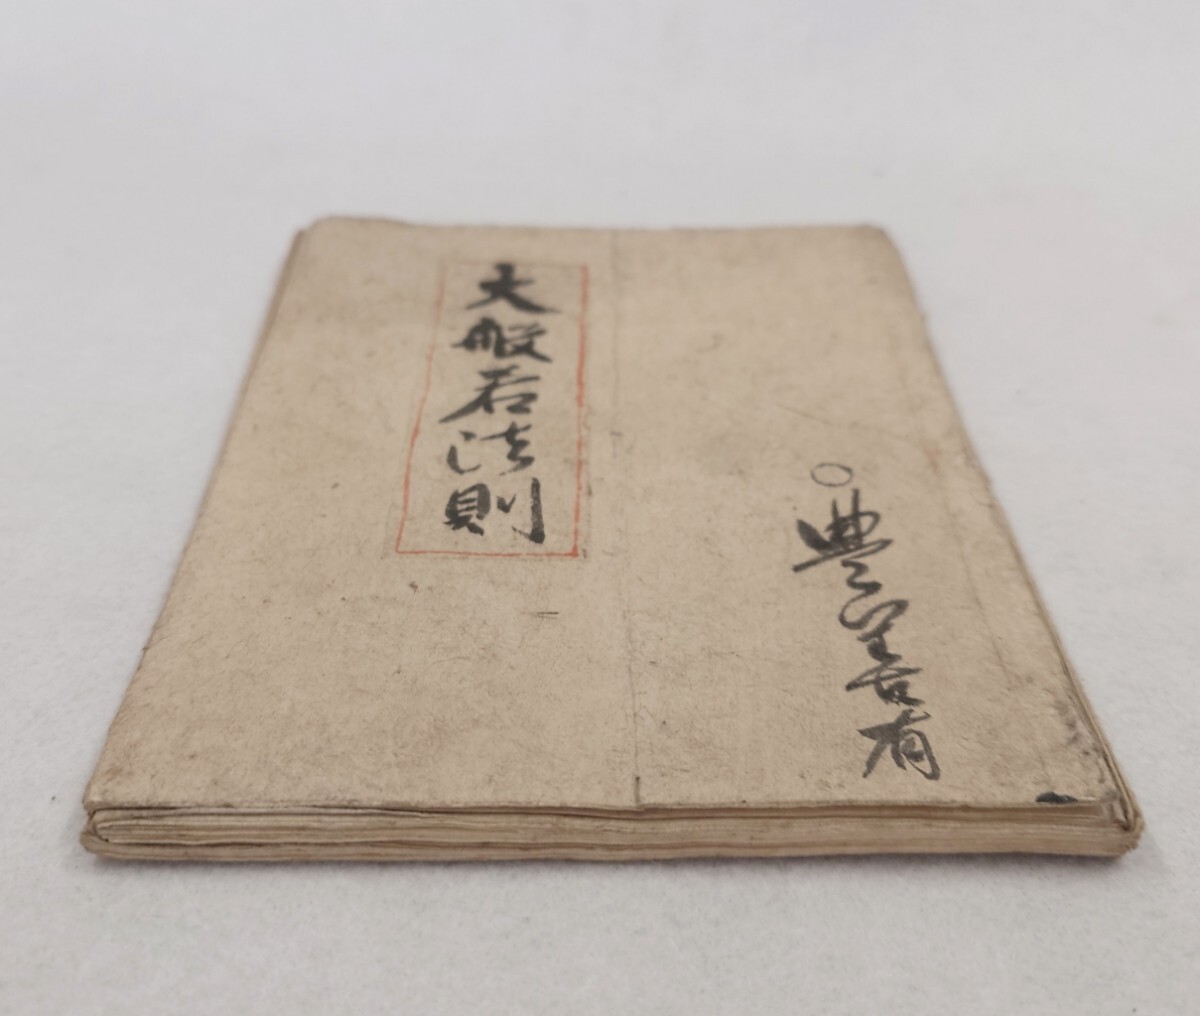 大般若法則
○豊善有